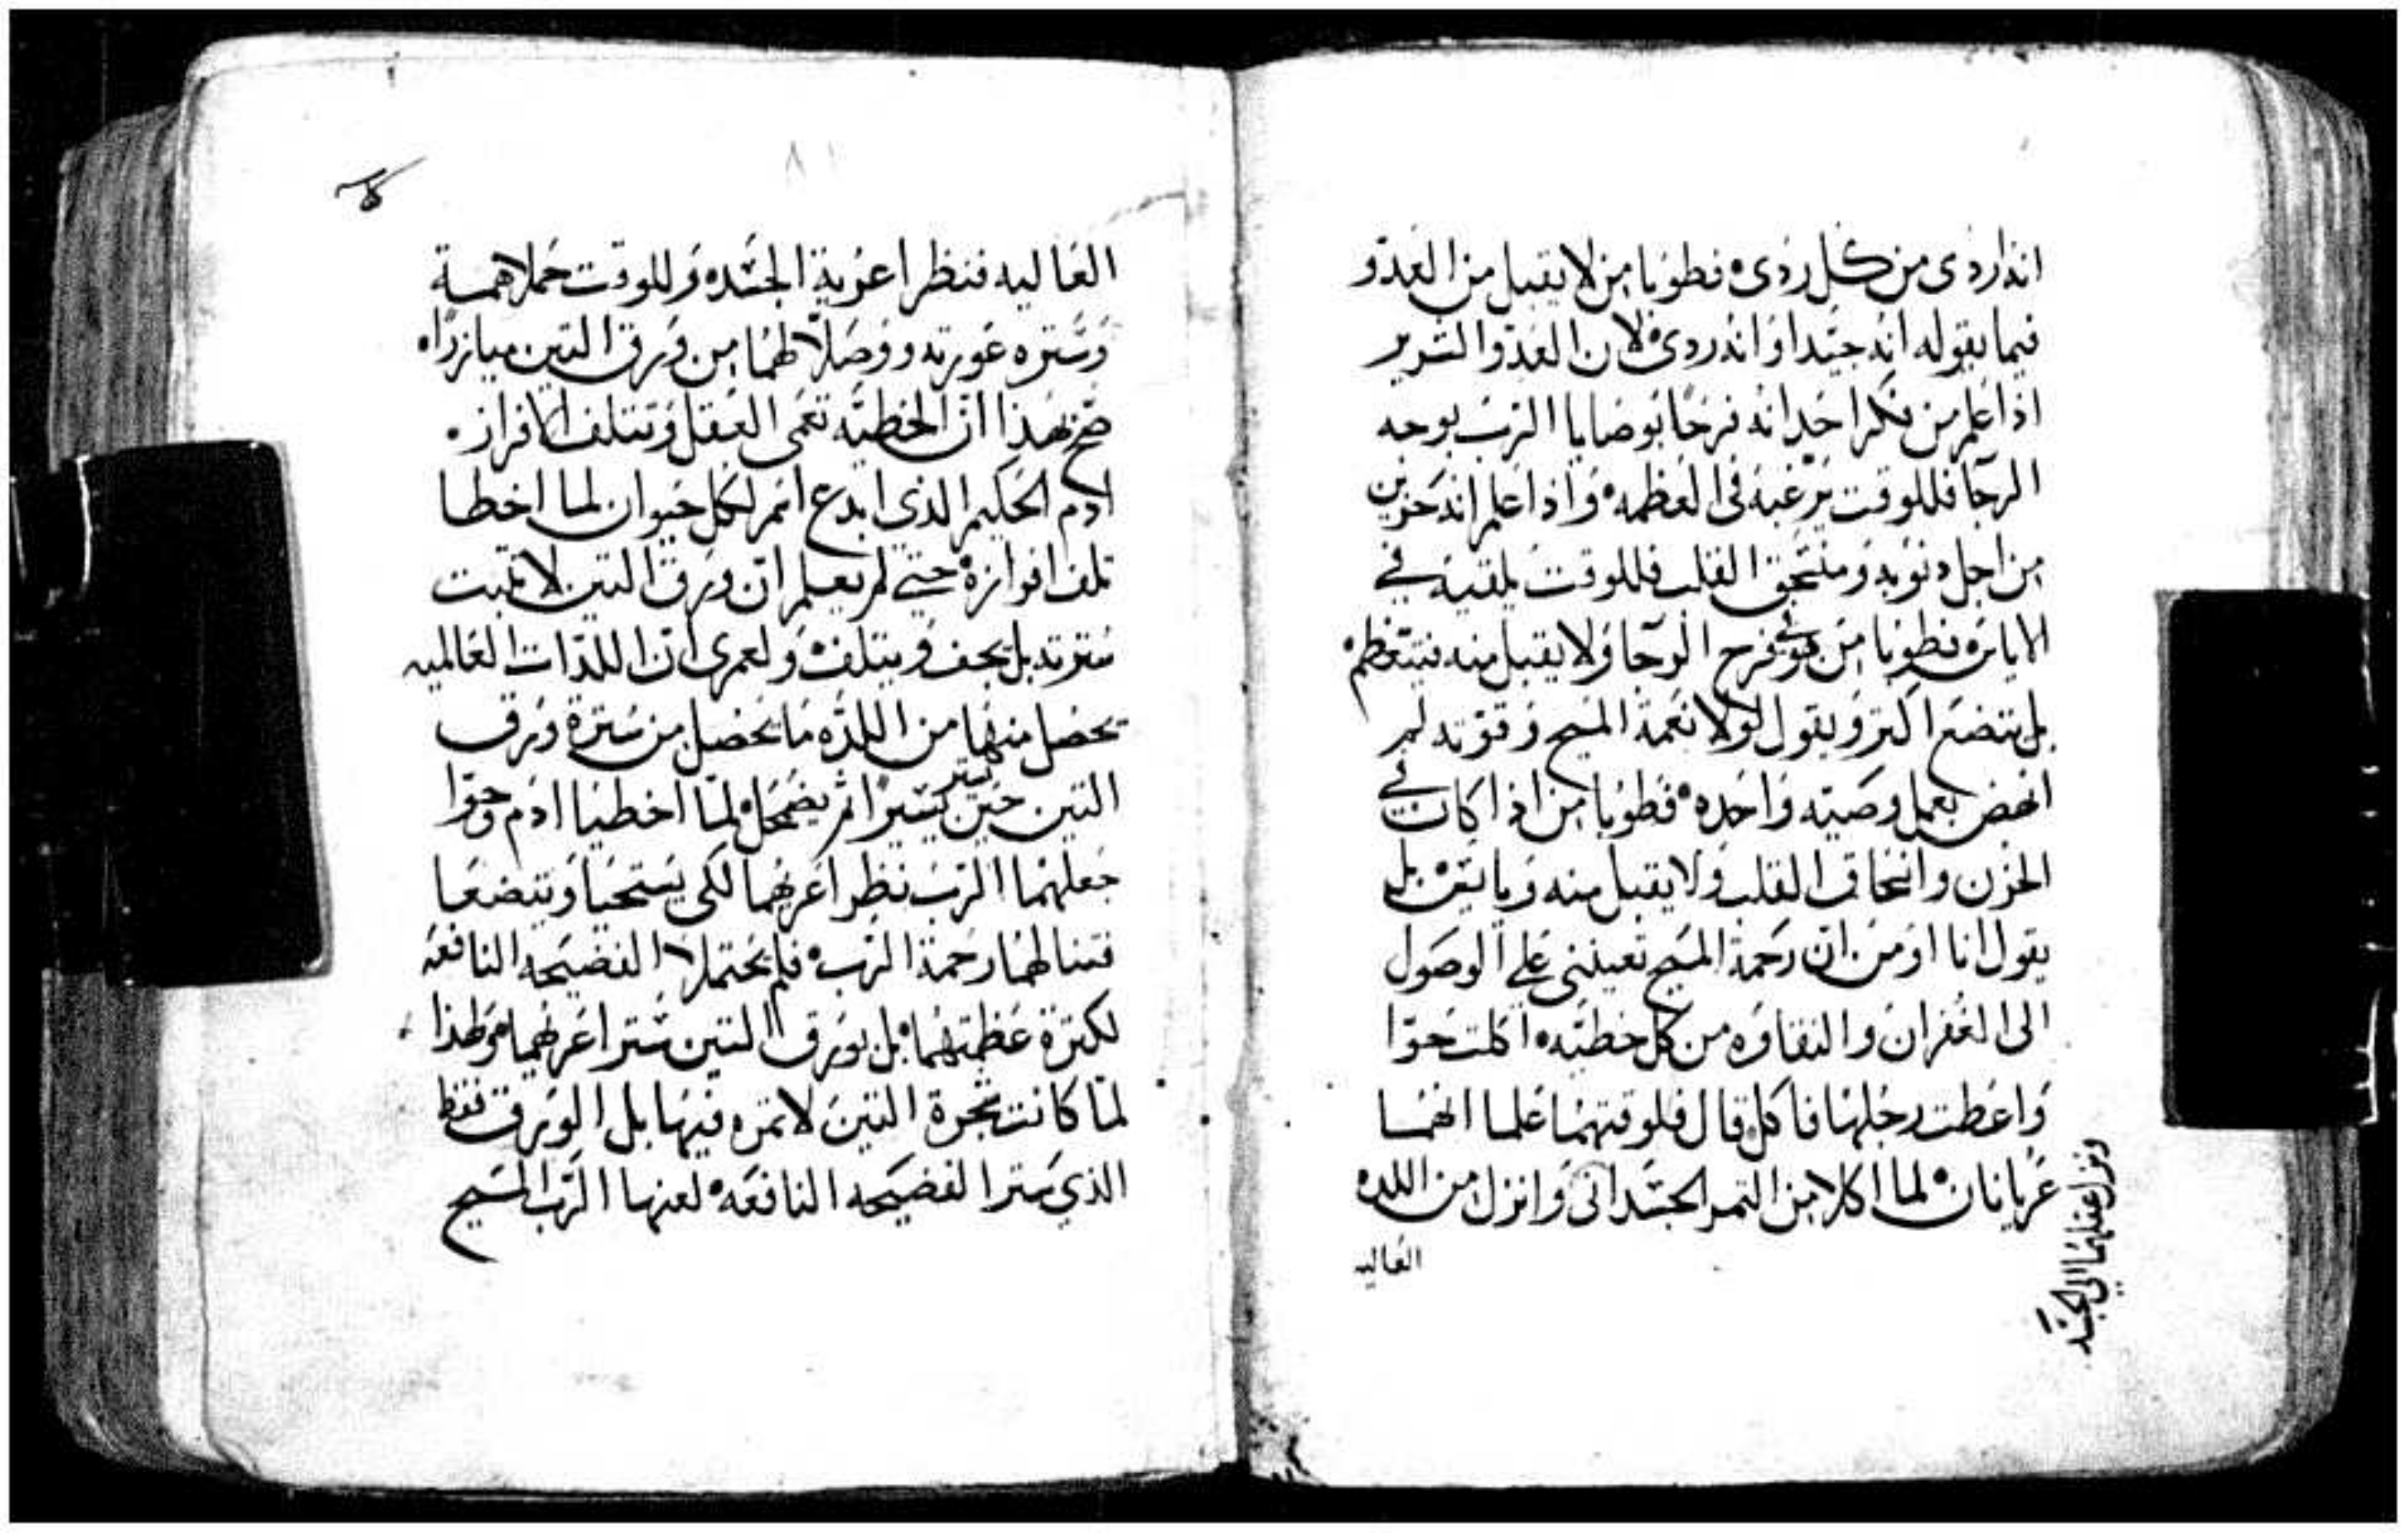 انه اردى من كل ردى فطوبا من لا يقبل من العدو
فيما يقوله انه جيدا او انه ردى لان العدو الشرير
اذا علم من فكر احد انه فرحًا بوصايا الرب بوجه
الرجا فللوقت يرغبه في العظمه واذا علم انه حزين
من اجل دنوبه ومنسحق القلب فللوقت يلقيه في
الاياس فطوبا من هو في فرح الرجا ولا يقبل منه فيتعظم
بل يتضع اكتر ويقول لولا نعمة المسيح وقوته لم
انهض بعمل وصيته واحده فطوبا من اذا كان في
الحزن وانسحاق القلب ولا يقبل منه ويايس بل
يقول انا اومن ان رحمة المسيح تعينني على الوصول
الى الغفران والنقاوه من كل خطيه اكلت حوا
واعطت رجلها فاكل قال فلوقتهما علما انهما
عريانان لما اكلا من التمر الجسداني وانزل من اللده
ونزل عقلهما الي الجسد
العاليه
العاليه فنظرا عرية الجسده وللوقت حملا همة
وستره عورته ووصلا لهما من ورق التين ميازراه
صح بهذا ان الخطيه تعمى العقل وتتلف الافراز
ادم الحكيم الذي ابدع اسم لكل حيوان لما اخطا
تلف افرازه حتي لم يعلم ان ورق التين لا تتبت
سترته بل يجف ويتلف ولعمرى ان اللذات العالميه
تحصل منها من اللذه ما يحصل من سترة ورق
التين حين يسير ثم يضمحل لما اخطيا ادم وحوا
جعلهما الرب نظرا عريهما لكي يستحيا ويتضعا
فتنالهما رحمة الرب فلم يحتملا الفضيحه النافعه
لكترة عظمتهما بل بورق التين سترا عريهما ولهذا
لما كانت شجرة التين لا تمره فيها بل الورق فقط
الذي ستر الفضيحه النافعه لعنها الرب المسيح